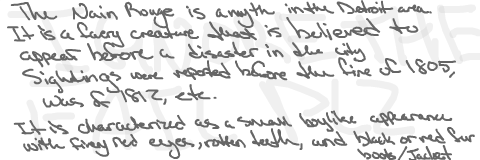 The Nain Rouge is a myth in the Detroit area.
It is a faery creature that is believed to
appear before a disaster in the city
Sightings were reported before the fire of 1805,
was of 1812, etc.
It is characterized as a small boylike appearance
with firey red eyes, rotten teeth, and black or red fur
boots/Jacket